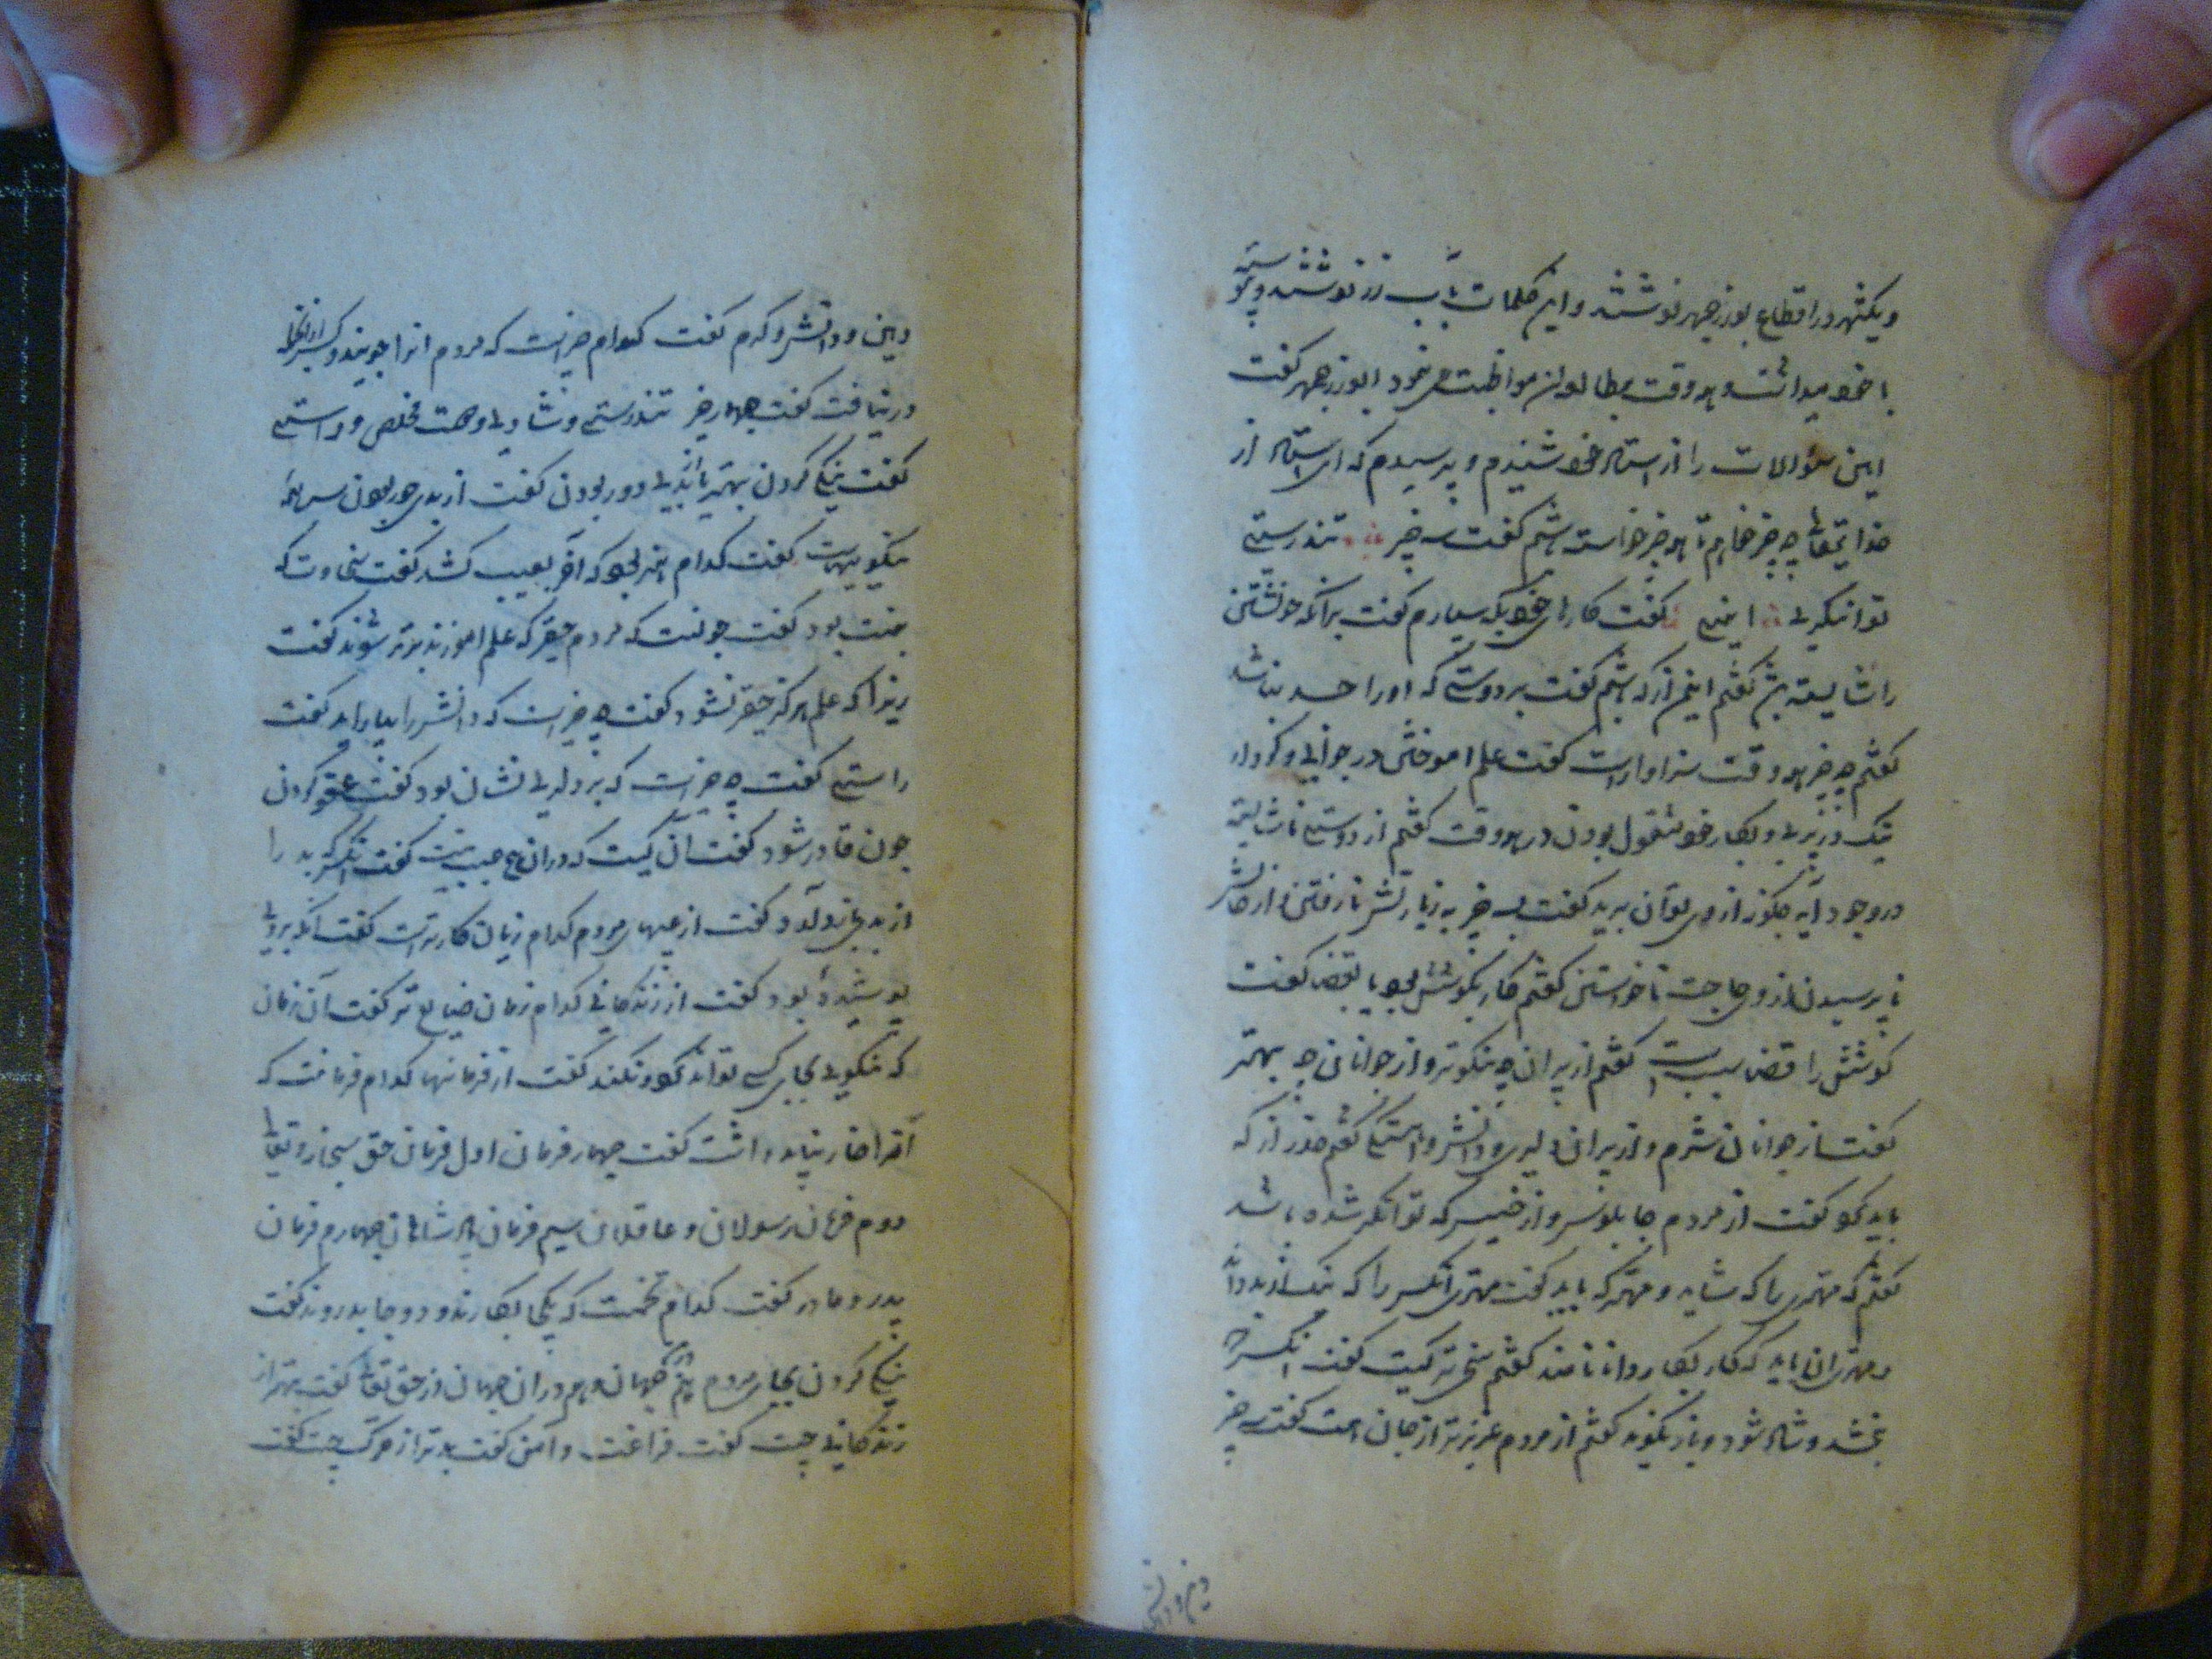 ویکشهر در اقطاع بوزرجمهر نوشتند و این کلمات بآب زر نوشتند و پیوسته
با خود میداشت و هر وقت بمطالعه آن مواظبت می نمود ابوزرجمهر گفت
این سؤالات را از استاد خود شنیدم و پرسیدم که ای استاد از
خدایتعالی چه چیز خواهم تا همه چیز خواسته باشم گفت سه چیز تندرستی
توانگری ایمنی گفت کارهای خود بکه سپارم گفت برآنکه خویشتن
را شایسته بود گفتم ایمن از که باشم گفت بر دوستی که او را حسد نباشد
گفتم چه چیز همه وقت سزاوار است گفت علم اموختن در جوانی و کردار
نیک در پیری و بکار خود مشغول بودن در همه وقت گفتم از دوستی ناشایسته
در وجود آید چگونه از وی توان برید گفت بسه چیز به زیارتش نارفتن از حالش
ناپرسیدن از وی حاجت ناخواستن گفتم کار بکوشش بود یا بقضا گفت
کوشش را قضا سبب است گفتم از پیران چه نیکوتر و از جوانان چه بهتر
گفت از جوانان شرم و از پیران دلیری و دانش و آهستگی گفتم حذر از که
باید کرد گفت از مردم چاپلوس و از خسیس که توانگر شده باشد
گفتم که مهتری را که شاید و مهتر که باید گفت مهتری آنکس را که نیک از بد داند
و مهتر آن باید که کار بکاردانان فرماید گفتم سخی تر کیست گفت آنکس چون
بخشد و شاد شود و باز نگوید گفتم از مردم عزیزتر از جان است گفت سه چیز
دین و دانش
دین و دانش و کرم گفت کدام چیز است که مردم انرا جویند و کس از انها
در نیافت گفت چهار چیز تندرستی و شادی و دوست مخلص و راستی
گفت نیکی کردن بهتر یا از بدی دور بودن گفت از بدی دور بودن سر همه
نیکویهاست گفت کدام هنر بود که آخر بعیب کشد گفت سخاوت که
بمنت بود گفت چونست که مردم حقیر که علم اموزند بزرگتر شوند گفت
زیرا که علم هرگز حقیر نشود گفت چه چیز است که دانش را بیاراید گفت
راستی گفت چه چیز است که بر دلیری نشان بود گفت عفو کردن
چون قادر شود گفت آن کیست که در ان هیچ عیب نیست گفت آنکس که بد را
از بد باز دارد گفت از عیبهای مردم کدام زیان کارتر است گفت آنکه بر وی
پوشیده بود گفت از زندگانی کدام زمان ضایع تر گفت آن زمان
که نیکویی بجای کسی تواند کرد و نکند گفت از فرمانها کدام فرمانست که
آنرا خار نباید داشت گفت چهار فرمان اول فرمان حق سبحانه و تعالی
دوم فرمان رسولان و عاقلان سیم فرمان پادشاهان چهارم فرمان
پدر و مادر گفت کدام تخمست که یکجا بکارند و دو جا بدروند گفت
نیکی کردن بجای مردم هم در جهان و هم در ان جهان از حق تعالی گفت بهتر از
زندگانی چیست گفت فراغت و آمنی گفت بدتر از مرگ چیست گفت